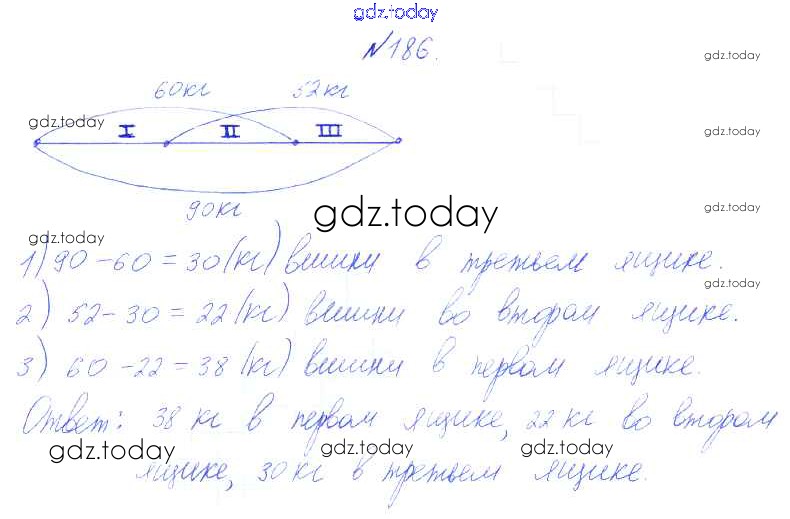 gdz.today
№186.
gdz.today
60кг 52кг
gdz.today
I II III
gdz.today
90кг
gdz.today
gdz.today
gdz.today
1) 90-60=30(кг) вишни в третьем ящике.
gdz.today
2) 52-30=22(кг) вишни во втором ящике.
3) 60-22=38(кг) вишни в первом ящике.
gdz.today
Ответ: 38 кг в первом ящике, 22 кг во втором
gdz.today gdz.today gdz.today
ящике, 30 кг в третьем ящике.